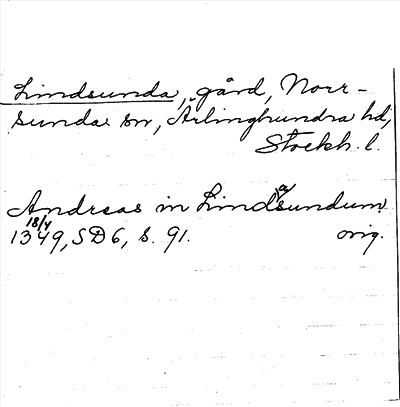 Lindsunda, gård, Norr-
sunda sn, Ärlinghundra hd,
Stockh. l.
Andreas in Lindasundum
18/4
1349, SD6, s. 91. orig.